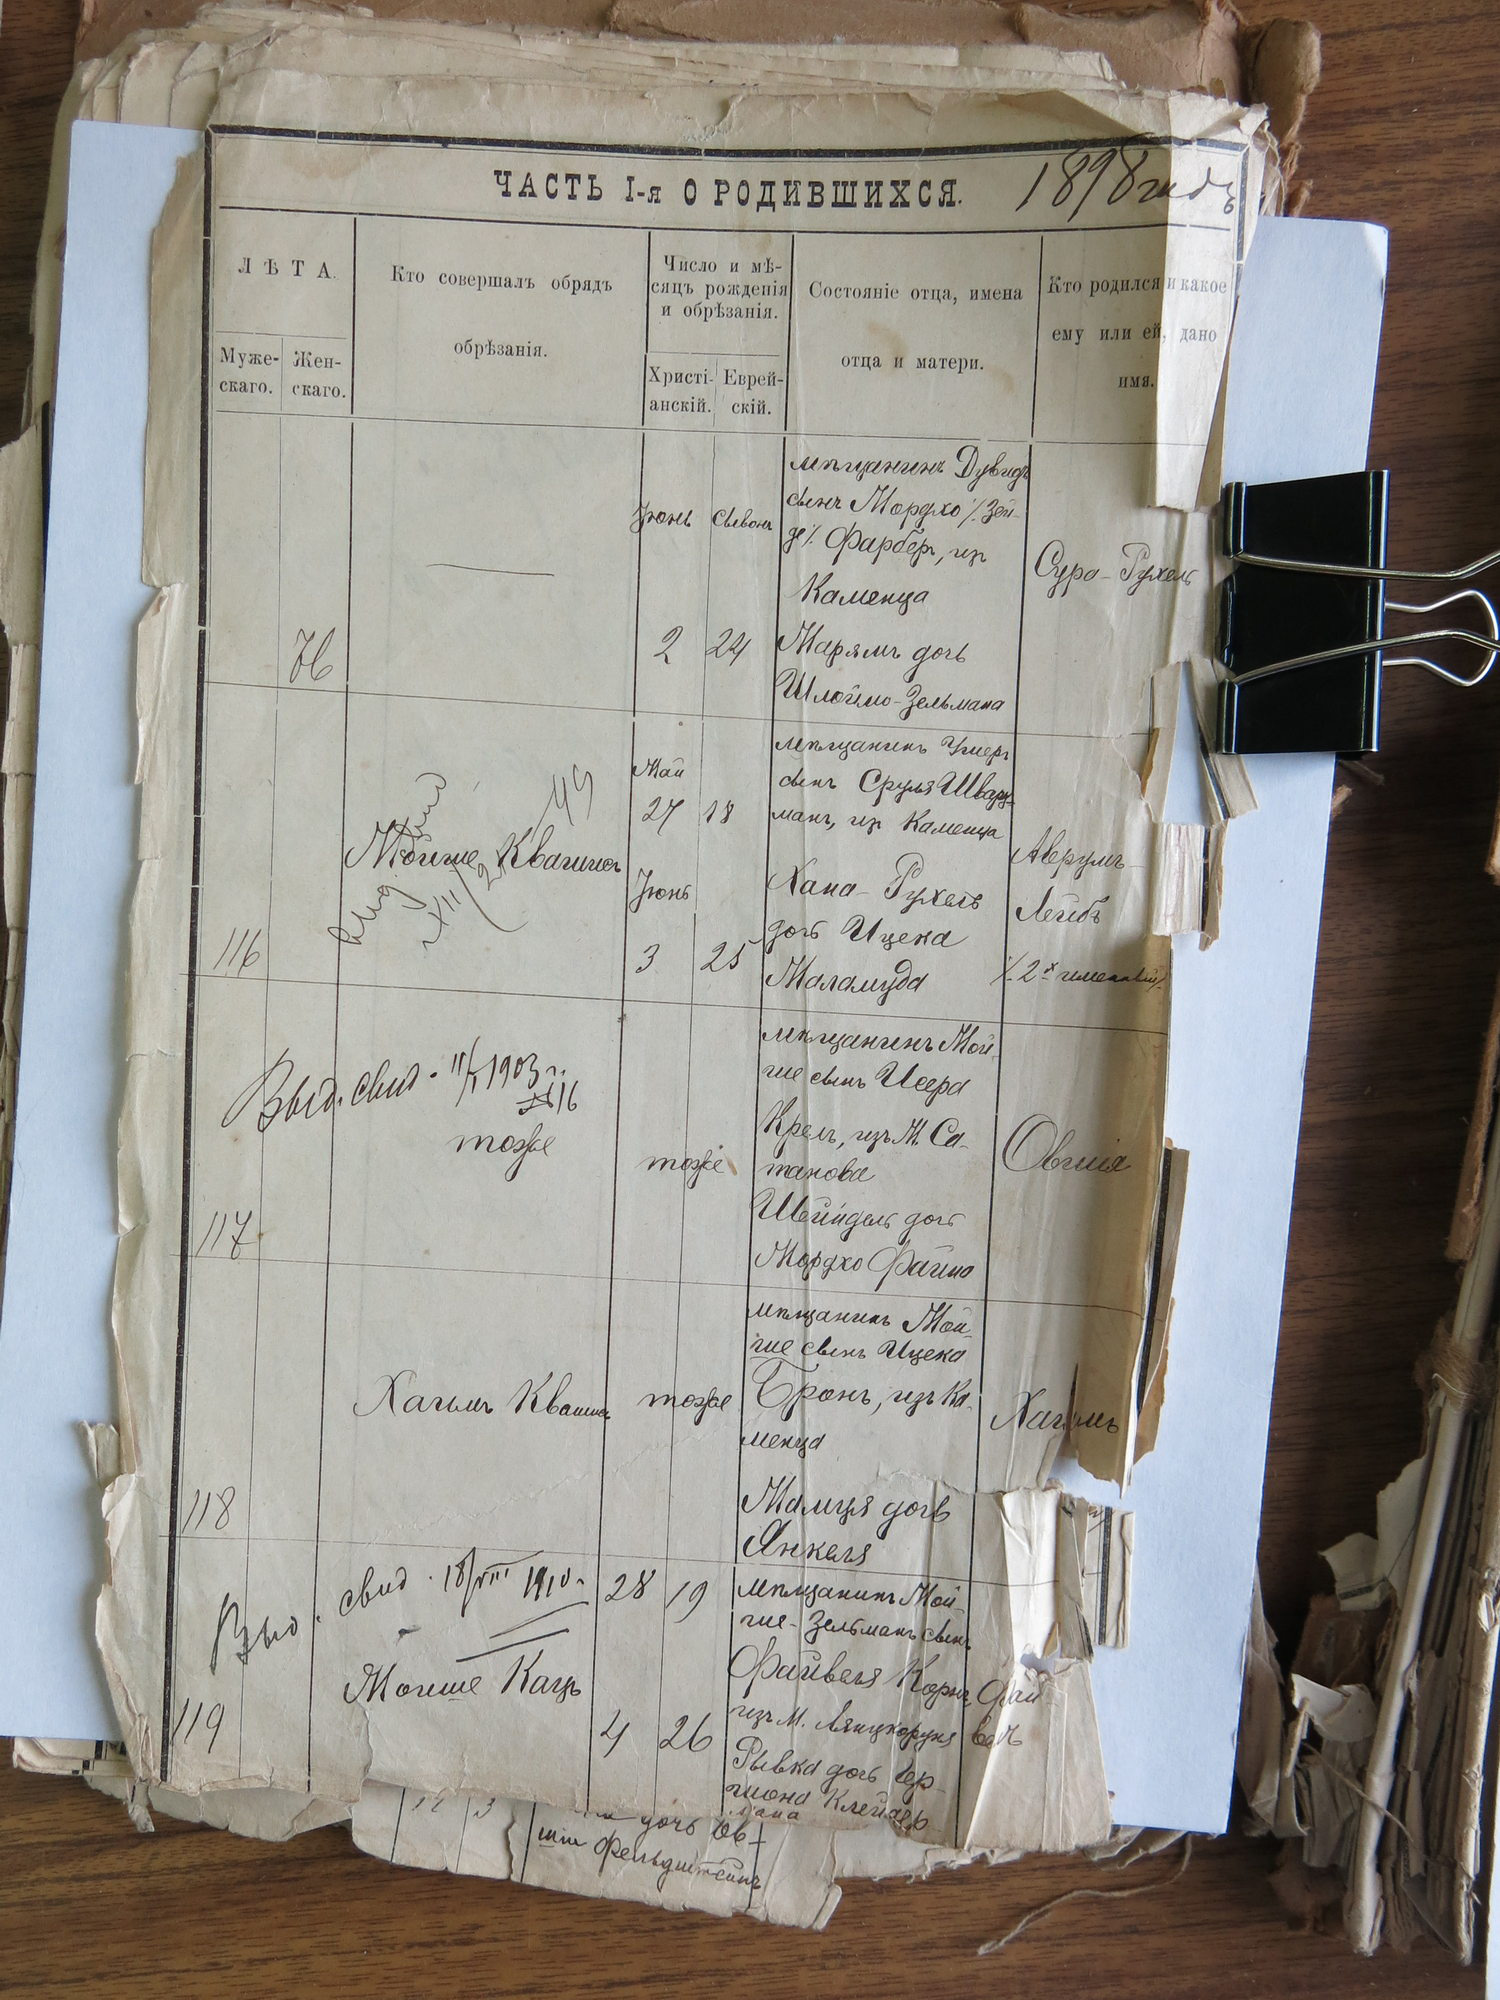 ЧАСТЬ I-я О РОДИВШИХСЯ.
1898 годъ
ЛѢТА.
Муже-
скаго.
Жен-
скаго.
Кто совершалъ обрядъ
обрѣзанія.
Число и мѣ-
сяцъ рожденія
и обрѣзанія.
Христі-
анскій.
Еврей-
скій.
Состояніе отца, имена
отца и матери.
Кто родился и какое
ему или ей, дано
имя.
76
Іюнь Сывонъ
2 24
мѣщанинъ Дувидъ
сынъ Мордхо /. Зей-
де /. Фарберъ, изъ
Каменца
Марямъ дочь
Шлоймо-Зельмана
Сура-Рухель
116
Мойше Квашисъ
49
Май
27 18
Іюнь
3 25
мѣщанинъ Ушеръ
сынъ Сруля Шварц-
манъ, изъ Каменца
Хана-Рухель
дочь Ицека
Маламуда
Аврумъ-
Лейбъ
/. 2х именный /.
Выд. свид. 11/I 1903 г.
№ 16
117
тоже
тоже
мѣщанинъ Мой-
ше сынъ Исера
Крель, изъ М. Са-
танова
Шейндель дочь
Мордхо Файна
Овшія
118
Хаимъ Квашисъ
тоже
мѣщанинъ Мой-
ше сынъ Ицека
Бронъ, изъ Ка-
менца
Малця дочь
Янкеля
Хаимъ
Выд. свид. 18/VIII 1910 г.
119
Мойше Кацъ
28 19
4 26
мѣщанинъ Мой-
ше-Зельманъ сынъ
Файвеля Корнъ,
изъ М. Лянцкоруня
Рывка дочь Гер-
шона Клейнеръ
Фай-
вель
дочь Ов-
шіи Фельдштейнъ